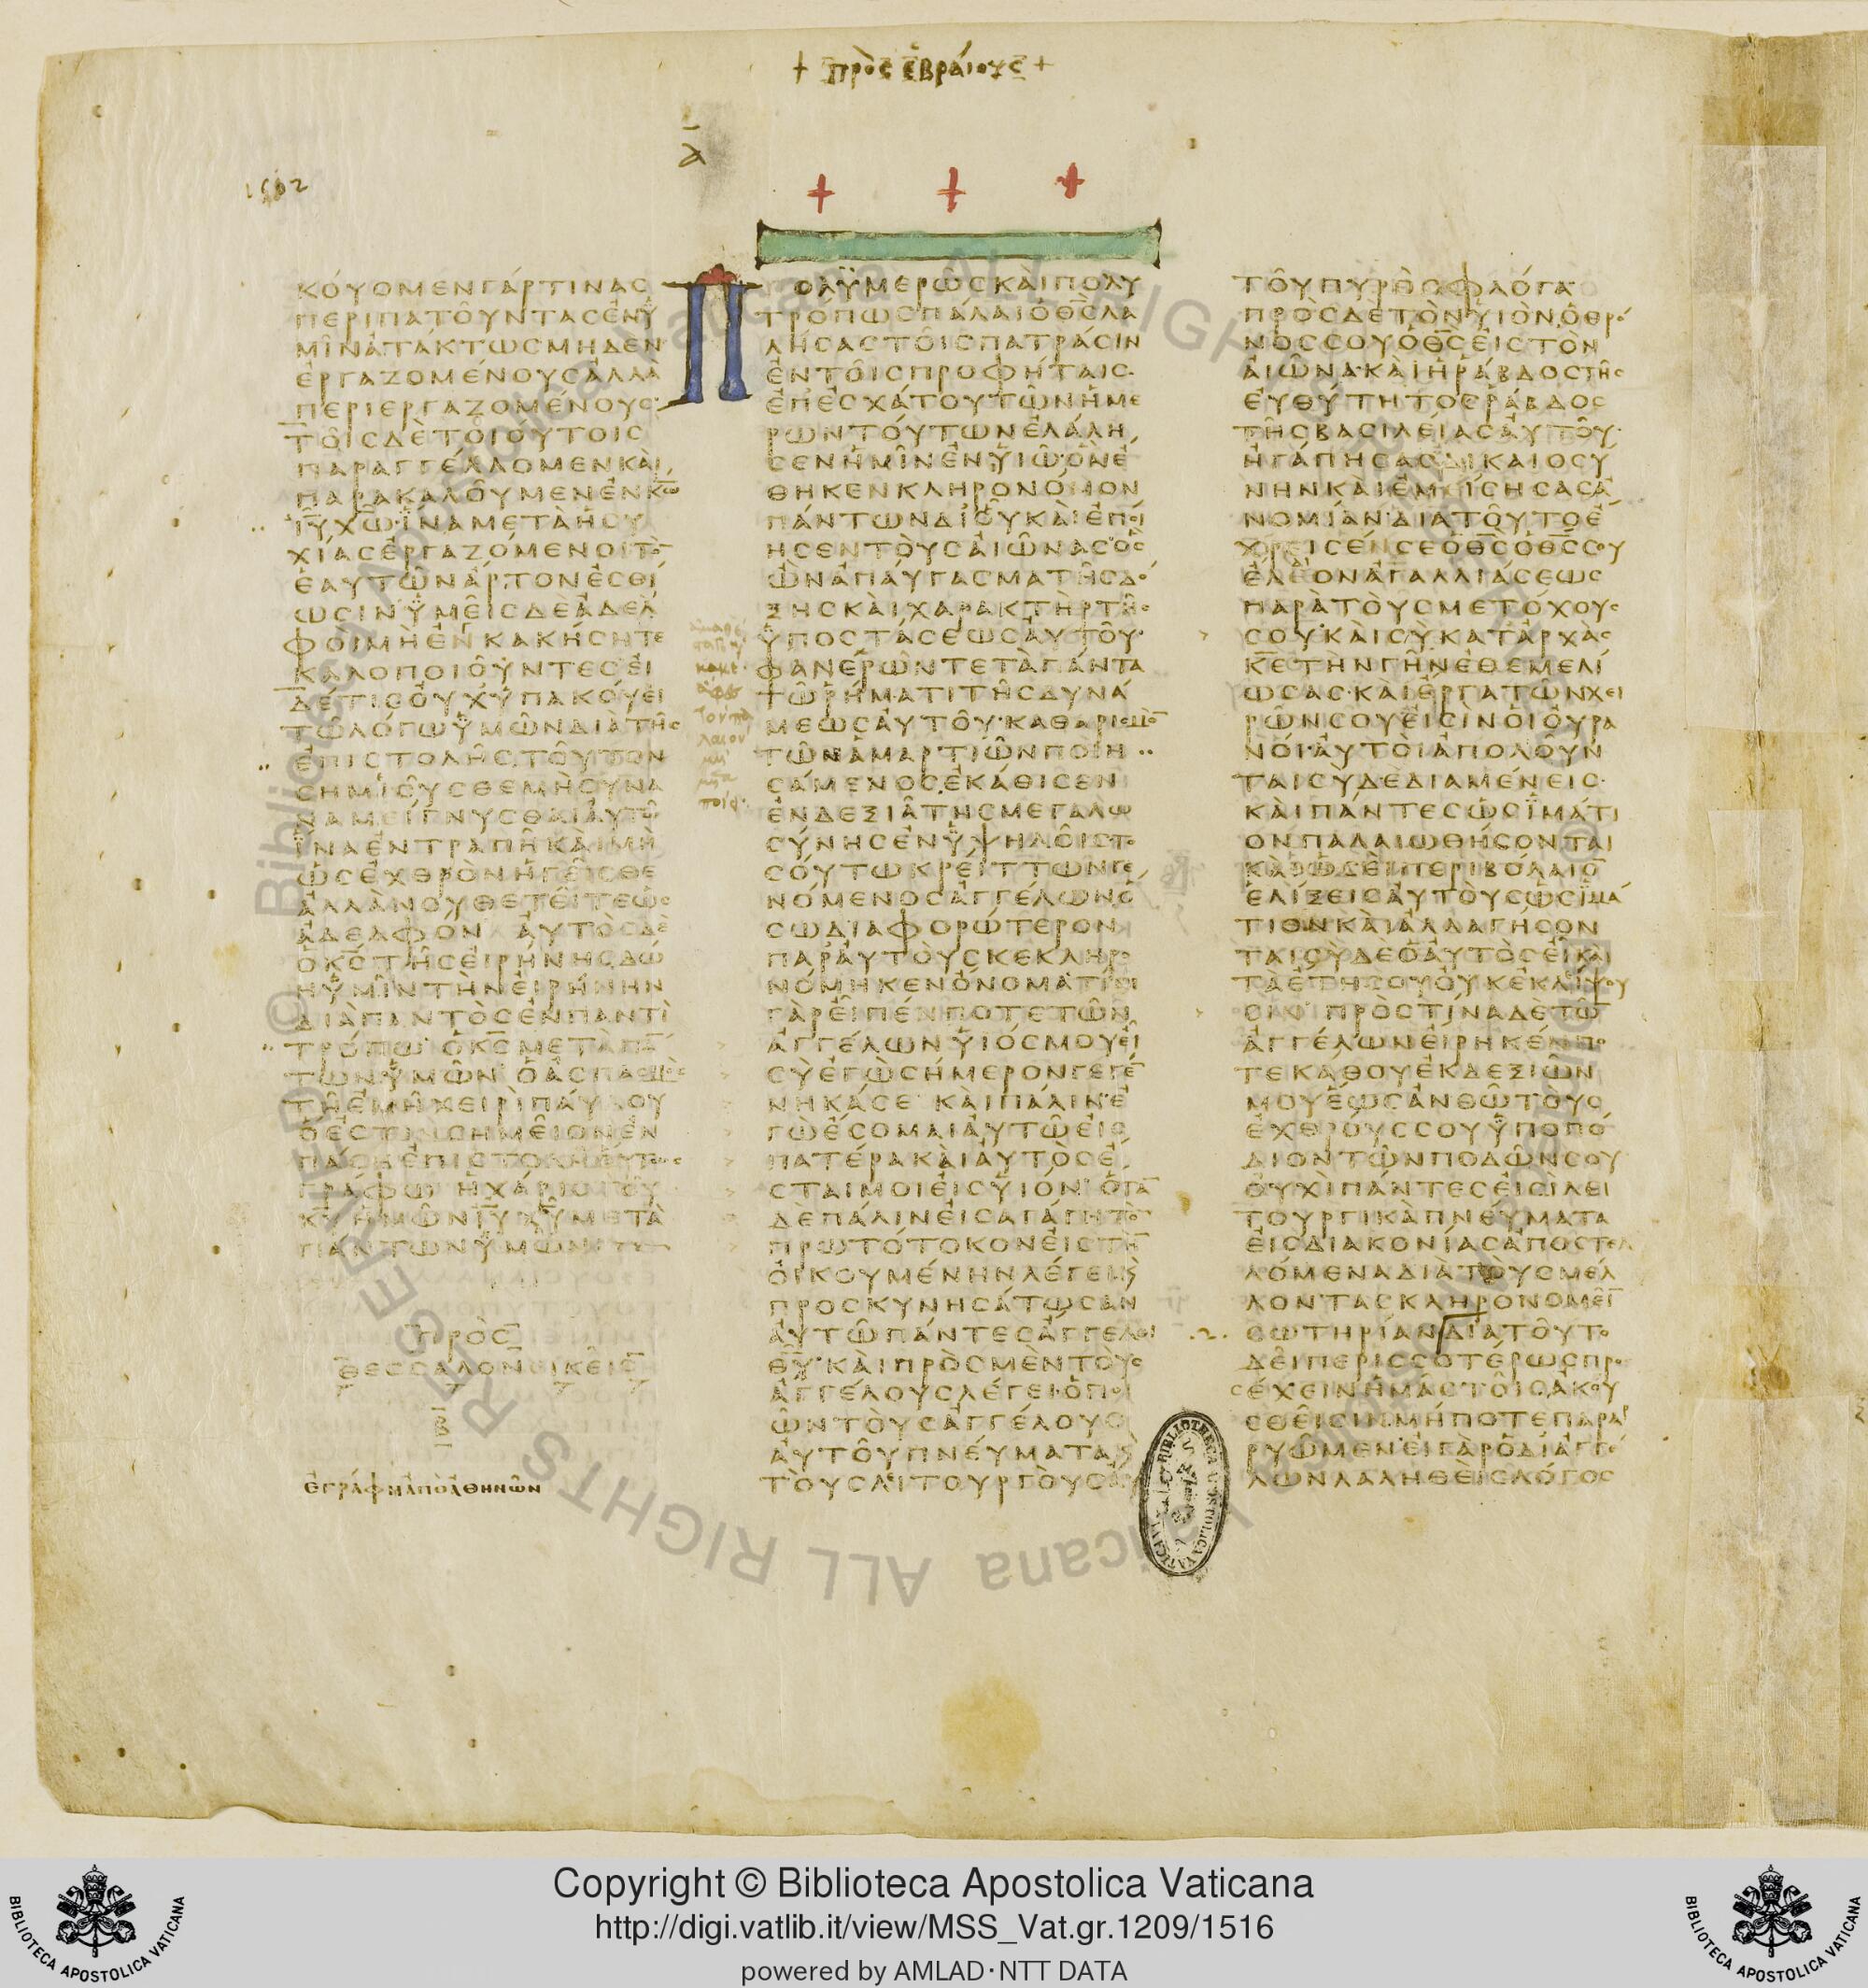 + πρὸς ἑβραίους +
1512
ΚΟΥΟΜΕΝΓΑΡΤΙΝΑΣ
ΠΕΡΙΠΑΤΟΥΝΤΑΣΕΝΥ
ΜΙΝΑΤΑΚΤΩΣΜΗΔΕΝ
ΕΡΓΑΖΟΜΕΝΟΥΣΑΛΛΑ
ΠΕΡΙΕΡΓΑΖΟΜΕΝΟΥΣ
ΤΟΙΣΔΕΤΟΙΟΥΤΟΙΣ
ΠΑΡΑΓΓΕΛΛΟΜΕΝΚΑΙ
ΠΑΡΑΚΑΛΟΥΜΕΝΕΝΚ̅Ω̅
Ι̅Υ̅Χ̅Ω̅ΙΝΑΜΕΤΑΗΣΥ
ΧΙΑΣΕΡΓΑΖΟΜΕΝΟΙΤΟ̅
ΕΑΥΤΩΝΑΡΤΟΝΕΣΘΙ
ΩΣΙΝΥΜΕΙΣΔΕΑΔΕΛ
ΦΟΙΜΗΕΝΚΑΚΗΣΗΤΕ
ΚΑΛΟΠΟΙΟΥΝΤΕΣΕΙ
ΔΕΤΙΣΟΥΧΥΠΑΚΟΥΕΙ
ΤΩΛΟΓΩΥΜΩΝΔΙΑΤΗΣ
ΕΠΙΣΤΟΛΗΣΤΟΥΤΟΝ
ΣΗΜΙΟΥΣΘΕΜΗΣΥΝΑ
ΝΑΜΕΙΓΝΥΣΘΑΙΑΥΤΩ
ΙΝΑΕΝΤΡΑΠΗΚΑΙΜΗ
ΩΣΕΧΘΡΟΝΗΓΕΙΣΘΕ
ΑΛΛΑΝΟΥΘΕΤΕΙΤΕΩΣ
ΑΔΕΛΦΟΝ ΑΥΤΟΣΔΕ
ΟΚ̅Σ̅ΤΗΣΕΙΡΗΝΗΣΔΩ
ΗΥΜΙΝΤΗΝΕΙΡΗΝΗΝ
ΔΙΑΠΑΝΤΟΣΕΝΠΑΝΤΙ
ΤΡΟΠΩ ΟΚ̅Σ̅ΜΕΤΑΠΑ̅
ΤΩΝΥΜΩΝ ΟΑΣΠΑΣΜΟΣ
ΤΗΕΜΗΧΕΙΡΙΠΑΥΛΟΥ
ΟΕΣΤΙΝΣΗΜΕΙΟΝΕΝ
ΠΑΣΗΕΠΙΣΤΟΛΗΟΥΤΩΣ
ΓΡΑΦΩ ΗΧΑΡΙΣΤΟΥ
Κ̅Υ̅ΗΜΩΝΙ̅Υ̅Χ̅Υ̅ΜΕΤΑ
ΠΑΝΤΩΝΥΜΩΝ
ΠΡΟΣ
ΘΕΣΣΑΛΟΝΕΙΚΕΙΣ
Β̅
ἐγράφη ἀπὸ ἀθηνῶν
Α̅
+ + +
ΠΟΛΥΜΕΡΩΣΚΑΙΠΟΛΥ
ΤΡΟΠΩΣΠΑΛΑΙΟΘ̅Σ̅ΛΑ
ΛΗΣΑΣΤΟΙΣΠΑΤΡΑΣΙΝ
ΕΝΤΟΙΣΠΡΟΦΗΤΑΙΣ
ΕΠΕΣΧΑΤΟΥΤΩΝΗΜΕ
ΡΩΝΤΟΥΤΩΝΕΛΑΛΗ
ΣΕΝΗΜΙΝΕΝΥΙΩΟΝΕ
ΘΗΚΕΝΚΛΗΡΟΝΟΜΟΝ
ΠΑΝΤΩΝΔΙΟΥΚΑΙΕΠΟΙ
ΗΣΕΝΤΟΥΣΑΙΩΝΑΣΟΣ
ΩΝΑΠΑΥΓΑΣΜΑΤΗΣΔΟ
ΞΗΣΚΑΙΧΑΡΑΚΤΗΡΤΗΣ
ΥΠΟΣΤΑΣΕΩΣΑΥΤΟΥ
ΦΑΝΕΡΩΝΤΕΤΑΠΑΝΤΑ
ΤΩΡΗΜΑΤΙΤΗΣΔΥΝΑ
ΜΕΩΣΑΥΤΟΥΚΑΘΑΡΙΣΜΟ̅
ΤΩΝΑΜΑΡΤΙΩΝΠΟΙΗ
ΣΑΜΕΝΟΣΕΚΑΘΙΣΕΝ
ΕΝΔΕΞΙΑΤΗΣΜΕΓΑΛΩ
ΣΥΝΗΣΕΝΥΨΗΛΟΙΣΤΟ
ΣΟΥΤΩΚΡΕΙΤΤΩΝΓΕ
ΝΟΜΕΝΟΣΑΓΓΕΛΩΝΟ
ΣΩΔΙΑΦΟΡΩΤΕΡΟΝ
ΠΑΡΑΥΤΟΥΣΚΕΚΛΗΡΟ
ΝΟΜΗΚΕΝΟΝΟΜΑΤΙΝΙ
ΓΑΡΕΙΠΕΝΠΟΤΕΤΩΝ
ΑΓΓΕΛΩΝΥΙΟΣΜΟΥΕΙ
ΣΥΕΓΩΣΗΜΕΡΟΝΓΕΓΕ̅
ΝΗΚΑΣΕ ΚΑΙΠΑΛΙΝΕ
ΓΩΕΣΟΜΑΙΑΥΤΩΕΙΣ
ΠΑΤΕΡΑΚΑΙΑΥΤΟΣΕ
ΣΤΑΙΜΟΙΕΙΣΥΙΟΝ ΟΤΑ̅
ΔΕΠΑΛΙΝΕΙΣΑΓΑΓΗΤΟ̅
ΠΡΩΤΟΤΟΚΟΝΕΙΣΤΗ̅
ΟΙΚΟΥΜΕΝΗΝΛΕΓΕΙΚ̣
ΠΡΟΣΚΥΝΗΣΑΤΩΣΑΝ
ΑΥΤΩΠΑΝΤΕΣΑΓΓΕΛΟΙ
Θ̅Υ̅ΚΑΙΠΡΟΣΜΕΝΤΟΥΣ
ΑΓΓΕΛΟΥΣΛΕΓΕΙΟΠΟΙ
ΩΝΤΟΥΣΑΓΓΕΛΟΥΣ
ΑΥΤΟΥΠΝΕΥΜΑΤΑΚ̣
ΤΟΥΣΛΙΤΟΥΡΓΟΥΣΑΥ
ἀμαθέ
στατε καὶ
κακέ
ἄφες
τὸν πα
λαιόν
μὴ
μετα
ποίει
ΤΟΥΠΥΡΟΣΦΛΟΓΑ
ΠΡΟΣΔΕΤΟΝΥΙΟΝΟΘΡΟ
ΝΟΣΣΟΥΟΘ̅Σ̅ΕΙΣΤΟΝ
ΑΙΩΝΑΚΑΙΗΡΑΒΔΟΣΤΗΣ
ΕΥΘΥΤΗΤΟΣΡΑΒΔΟΣ
ΤΗΣΒΑΣΙΛΕΙΑΣΑΥΤΟΥ
ΗΓΑΠΗΣΑΣΔΙΚΑΙΟΣΥ
ΝΗΝΚΑΙΕΜΙΣΗΣΑΣΑ
ΝΟΜΙΑΝΔΙΑΤΟΥΤΟΕ
ΧΡΕΙΣΕΝΣΕΟΘ̅Σ̅ΟΘ̅Σ̅ΣΟΥ
ΕΛΕΟΝΑΓΑΛΛΙΑΣΕΩΣ
ΠΑΡΑΤΟΥΣΜΕΤΟΧΟΥΣ
ΣΟΥΚΑΙΣΥΚΑΤΑΡΧΑΣ
Κ̅Ε̅ΤΗΝΓΗΝΕΘΕΜΕΛΙ
ΩΣΑΣΚΑΙΕΡΓΑΤΩΝΧΕΙ
ΡΩΝΣΟΥΕΙΣΙΝΟΙΟΥΡΑ
ΝΟΙΑΥΤΟΙΑΠΟΛΟΥΝ
ΤΑΙΣΥΔΕΔΙΑΜΕΝΕΙΣ
ΚΑΙΠΑΝΤΕΣΩΣΙΜΑΤΙ
ΟΝΠΑΛΑΙΩΘΗΣΟΝΤΑΙ
ΚΑΙΩΣΕΙΠΕΡΙΒΟΛΑΙΟ̅
ΕΛΙΞΕΙΣΑΥΤΟΥΣΩΣΙΜΑ
ΤΙΟΝΚΑΙΑΛΛΑΓΗΣΟΝ
ΤΑΙΣΥΔΕΟΑΥΤΟΣΕΙΚΑΙ
ΤΑΕΤΗΣΟΥΟΥΚΕΚΛΙΨΟΥ
ΣΙΝ ΠΡΟΣΤΙΝΑΔΕΤΩ̅
ΑΓΓΕΛΩΝΕΙΡΗΚΕΝΠΟ
ΤΕΚΑΘΟΥΕΚΔΕΞΙΩΝ
ΜΟΥΕΩΣΑΝΘΩΤΟΥΣ
ΕΧΘΡΟΥΣΣΟΥΥΠΟΠΟ
ΔΙΟΝΤΩΝΠΟΔΩΝΣΟΥ
ΟΥΧΙΠΑΝΤΕΣΕΙΣΙΛΕΙ
ΤΟΥΡΓΙΚΑΠΝΕΥΜΑΤΑ
ΕΙΣΔΙΑΚΟΝΙΑΣΑΠΟΣΤΕΛ
ΛΟΜΕΝΑΔΙΑΤΟΥΣΜΕΛ
ΛΟΝΤΑΣΚΛΗΡΟΝΟΜΕΙ̅
ΣΩΤΗΡΙΑΝΔΙΑΤΟΥΤΟ
ΔΕΙΠΕΡΙΣΣΟΤΕΡΩΣΠΡΟ
ΣΕΧΕΙΝΗΜΑΣΤΟΙΣΑΚΟΥ
ΣΘΕΙΣΙΝΜΗΠΟΤΕΠΑΡΑΡ
ΡΥΩΜΕΝΕΙΓΑΡΟΔΙΑΓΓΕ
ΛΩΝΛΑΛΗΘΕΙΣΛΟΓΟΣ
BIBLIOTHECA APOSTOLICA VATICANA
© Biblioteca Apostolica Vaticana ALL RIGHTS RESERVED
Copyright © Biblioteca Apostolica Vaticana
http://digi.vatlib.it/view/MSS_Vat.gr.1209/1516
powered by AMLAD·NTT DATA
BIBLIOTECA APOSTOLICA VATICANA
BIBLIOTECA APOSTOLICA VATICANA